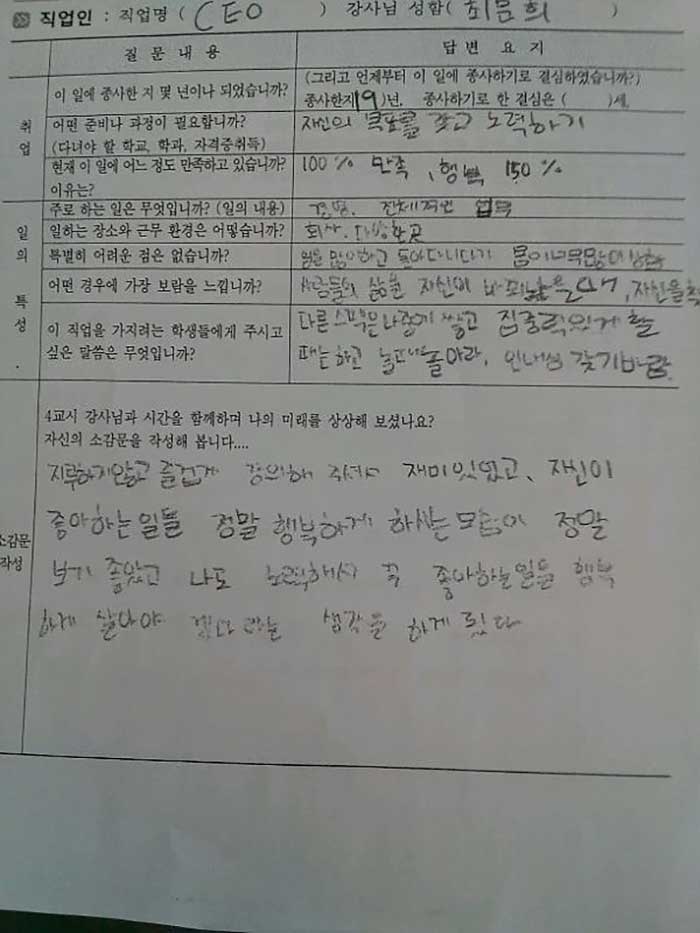 직업인 : 직업명 ( CEO ) 강사님 성함( 최문희 )
질 문 내 용 답 변 요 지
취업
이 일에 종사한 지 몇 년이나 되었습니까? (그리고 언제부터 이 일에 종사하기로 결심하였습니까?)
종사한지( 19 )년, 종사하기로 한 결심은 ( )세,
어떤 준비나 과정이 필요합니까? 자신의 목표를 갖고 노력하기
(다녀야 할 학교, 학과, 자격증취득)
현재 이 일에 어느 정도 만족하고 있습니까? 100 % 만족, 행복 150 %
이유는?
일의 특성
주로 하는 일은 무엇입니까? (일의 내용) 경영, 전체적인 업무
일하는 장소와 근무 환경은 어떻습니까? 회사,
특별히 어려운 점은 없습니까? 일을 많이하고 돌아다니다가 몸이
어떤 경우에 가장 보람을 느낍니까? 사람들의 삶을 자신이 바꿔 을때, 자신을
이 직업을 가지려는 학생들에게 주시고 다른 쌓고 집중력있게 할
싶은 말씀은 무엇입니까? 때는 하고 놀때는 놀아라, 인내심 갖기바람
4교시 강사님과 시간을 함께하며 나의 미래를 상상해 보셨나요?
자신의 소감문을 작성해 봅니다....
소감문 작성
지루하지않고 즐겁게 강의해 주셔서 재미있었고, 자신이
좋아하는일들 정말 행복하게 하시는 모습이 정말
보기 좋았고 나도 노력해서 꼭 좋아하는일들 행복
하게 살아야 겠다 라는 생각을 하게 됬다